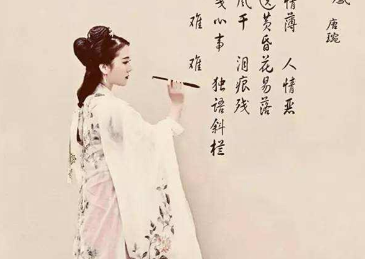 唐琬
情薄 人情恶
送黄昏花易落
风干 泪痕残
笺心事 独语斜栏
难 难